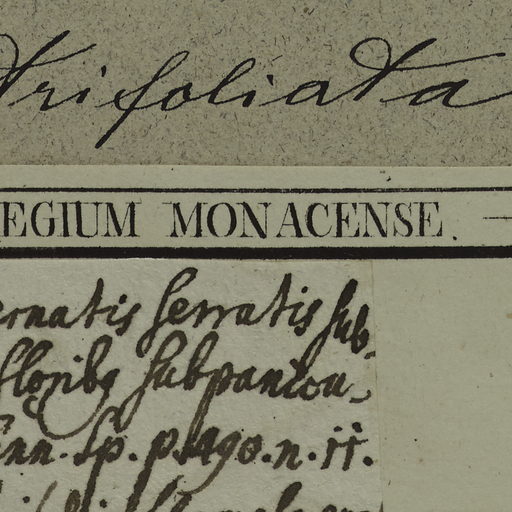 trifoliata
EGIUM MONACENSE.
ernatis serratis sub-
floribq subpanicu-
inn. Sp. p. 1490. n. 11.